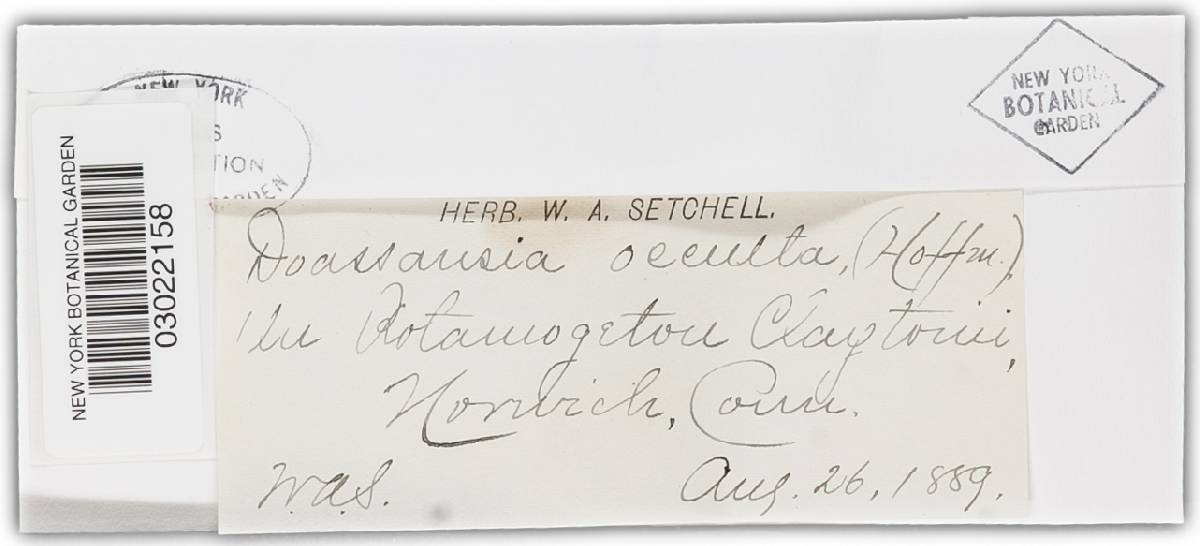 NEW YORK
S
TION
GARDEN
NEW YORK
BOTANICAL
GARDEN
NEW YORK BOTANICAL GARDEN
03022158
HERB. W. A. SETCHELL.
Doassansia occulta, (Hoffm.),
In Potamogeton Claytonii,
Norwich, Conn.
W.A.S. Aug. 26, 1889.